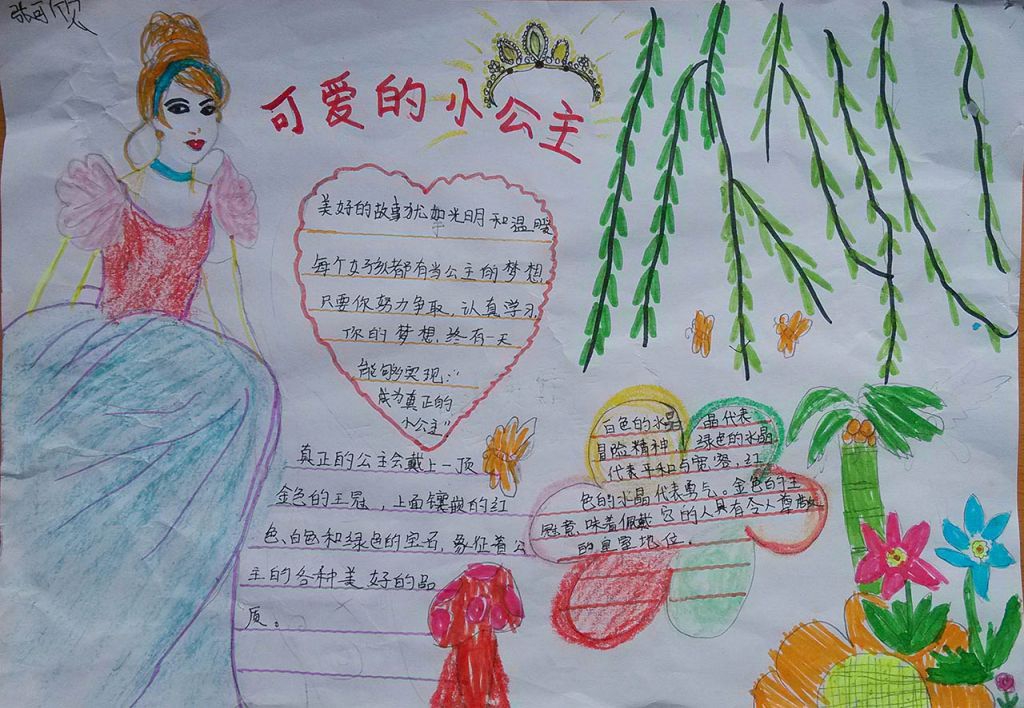 张可欣
可爱的小公主
美好的故事犹如光明和温暖
每个女孩都有当公主的梦想
只要你努力争取,认真学习
你的梦想,终有一天
能够实现:“
成为真正的
小公主”
真正的公主会戴上一顶
金色的王冠,上面镶嵌的红
色、白色和绿色的宝石,象征着公
主的各种美好的品
质。
白色的水晶 晶代表
冒险精神 绿色的水晶
代表平和与宽容,红
色的水晶代表勇气。金色的王
冠意味着佩戴它的人具有令人尊敬
的皇室地位。